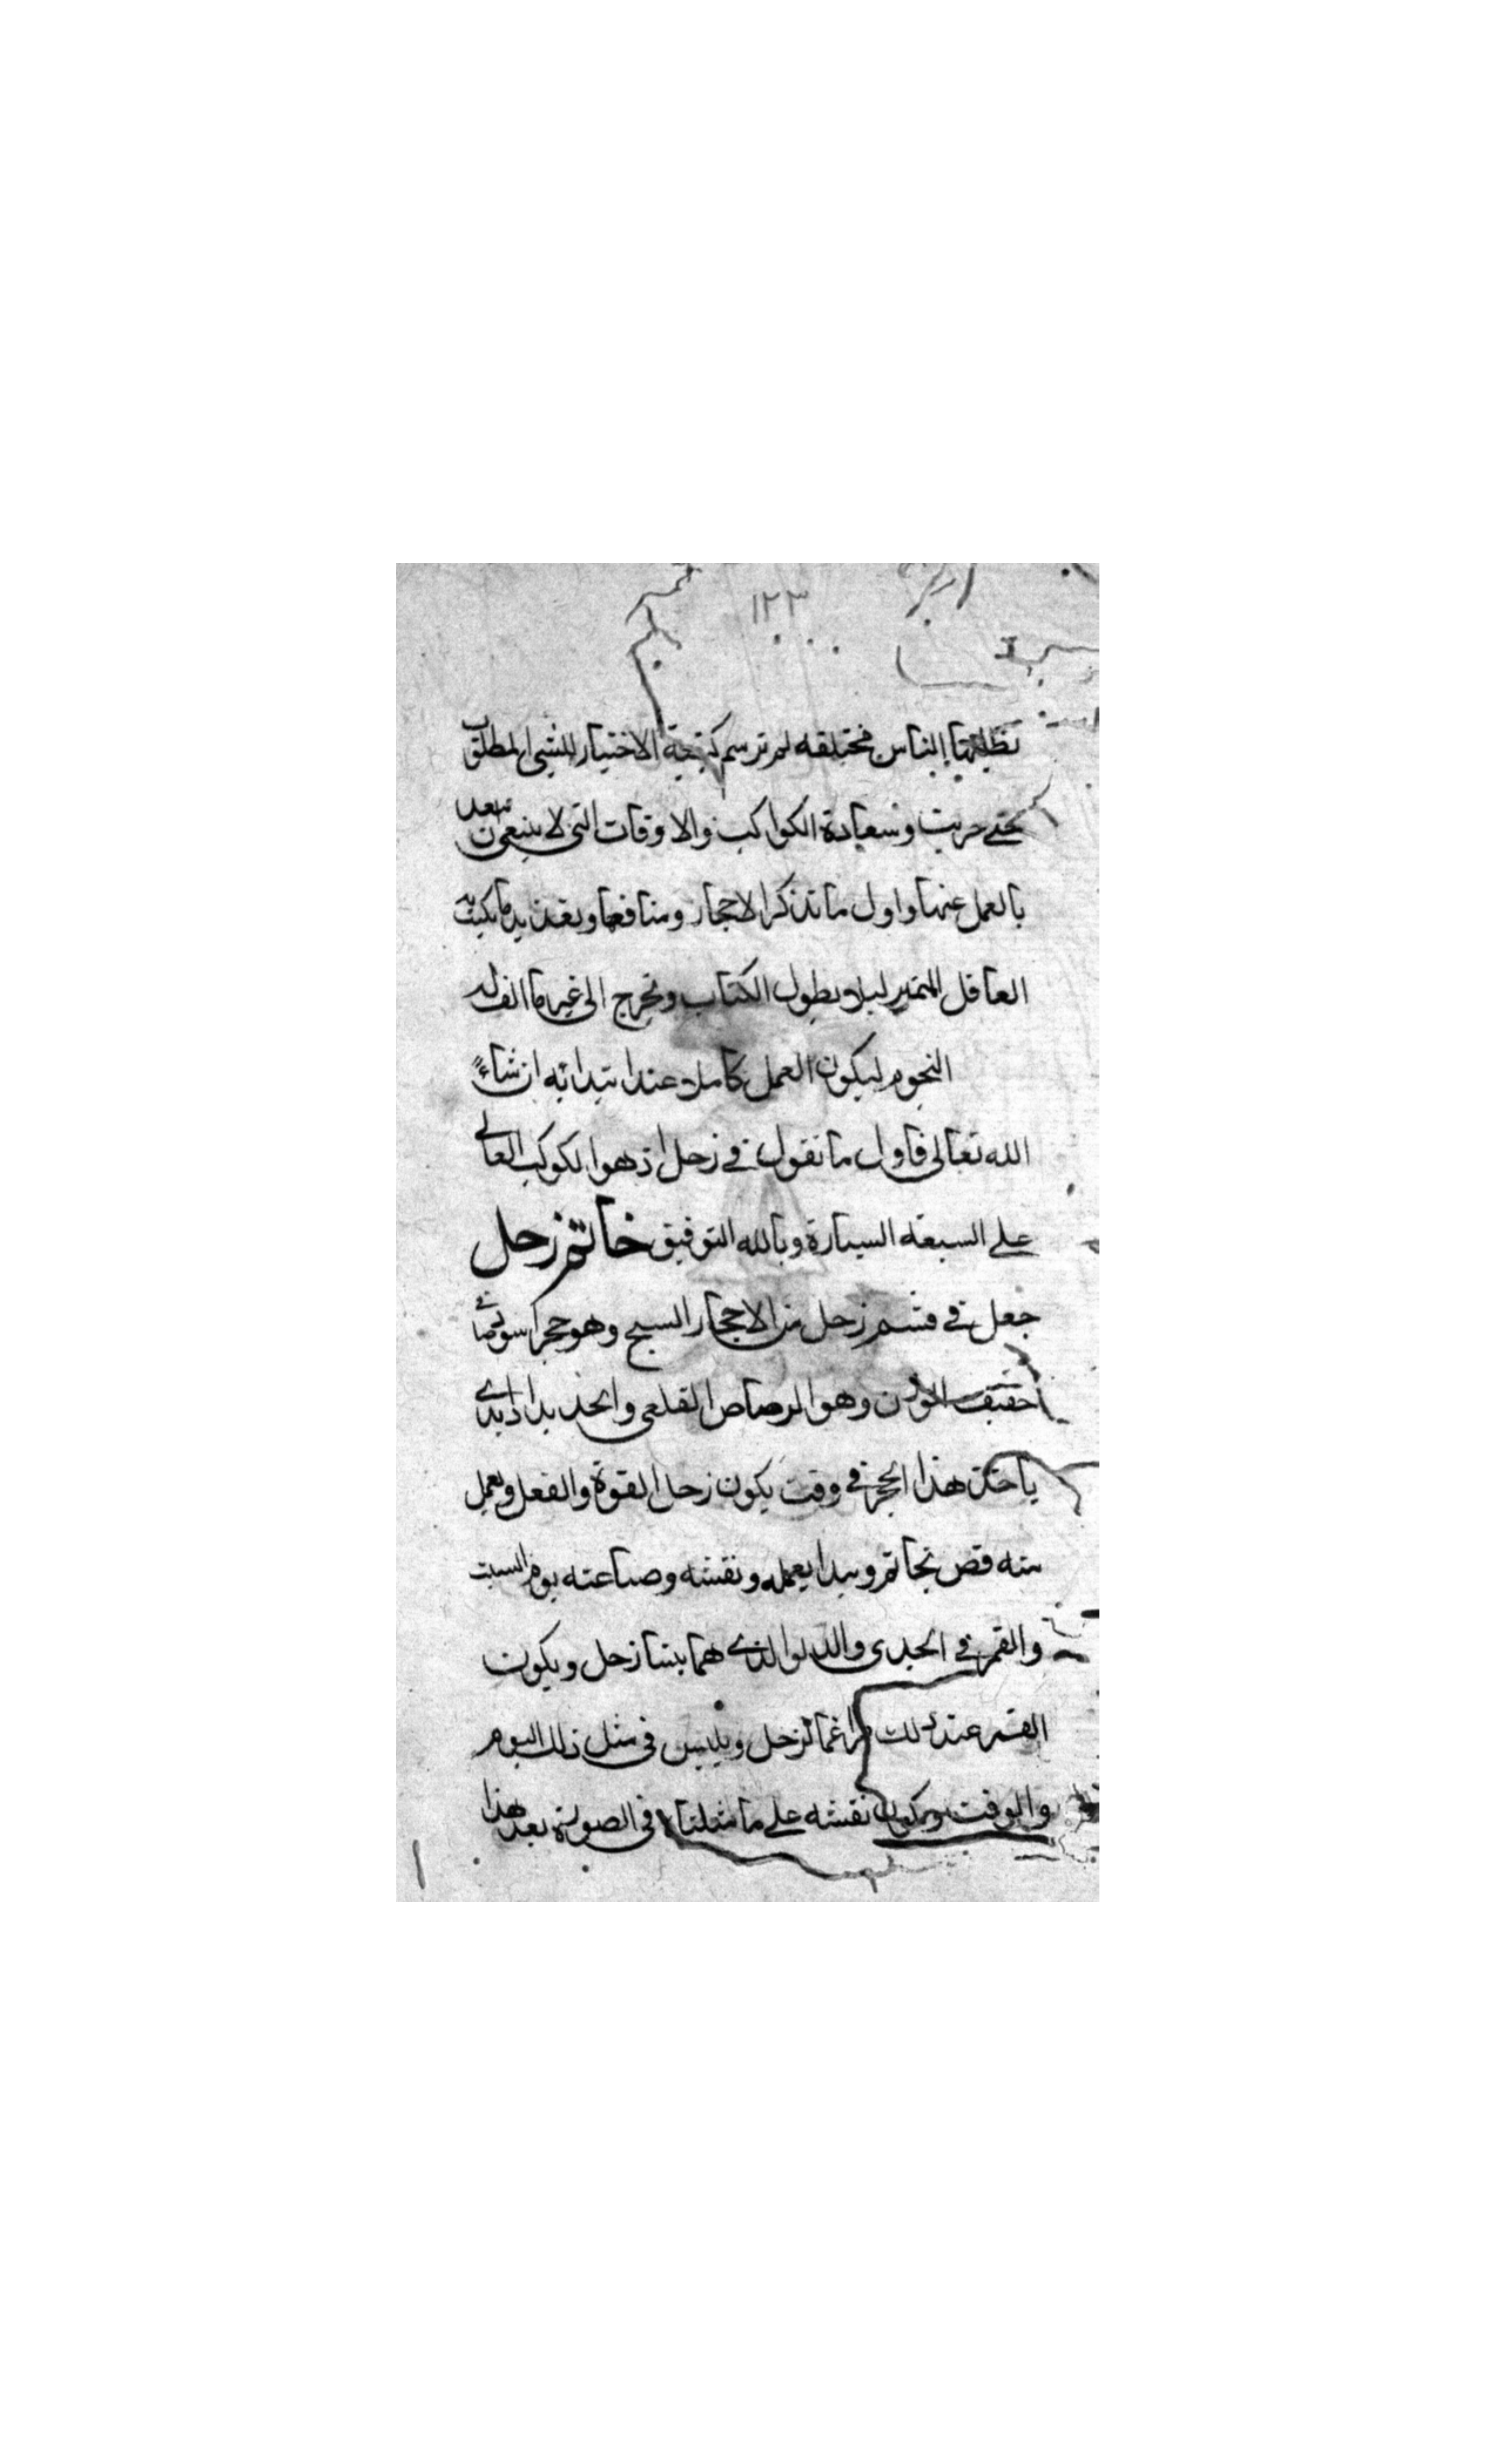 ١٢٣
يطلبها الناس مختلفه لم نرسم كيفية الاختيار للشي المطلوب
حتى جربت وسعادة الكواكب والاوقات التى لا ينبغى ان نعدل
بالعمل عنها واول ما نذكر الاحجار ومنافعها وبعد
العاقل المتميز ليلا يطول الكتاب ونخرج الى غير ما الف له
النجوم ليكون العمل كاملا عند ابتدائه ان شاء
الله تعالى فاول ما نقول في زحل اذ هو الكوكب العالي
على السبعة السيارة وبالله التوفيق خاتم زحل
جعل في قسم زحل من الاحجار السبج وهو حجر اسود
خفيف الوزن وهو الرصاص القلعى والحديد
ياخذ هذا الحجر في وقت يكون زحل القوة والفعل ويعمل
منه فص بخاتم ويبدا يعمله ونقشه وصناعته يوم السبت
والقمر في الجدى والدلو الذي هما بيتا زحل ويكون
القمر عند ذلك لزحل ويلبس فى مثل ذلك اليوم
والوقت ويكون نقشه على ما مثلنا فى الصورة بعد هذا